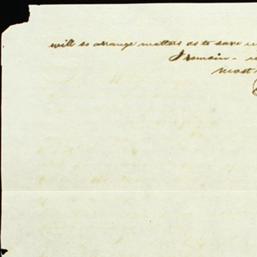 will so arrange matters as to save
I remain -
most